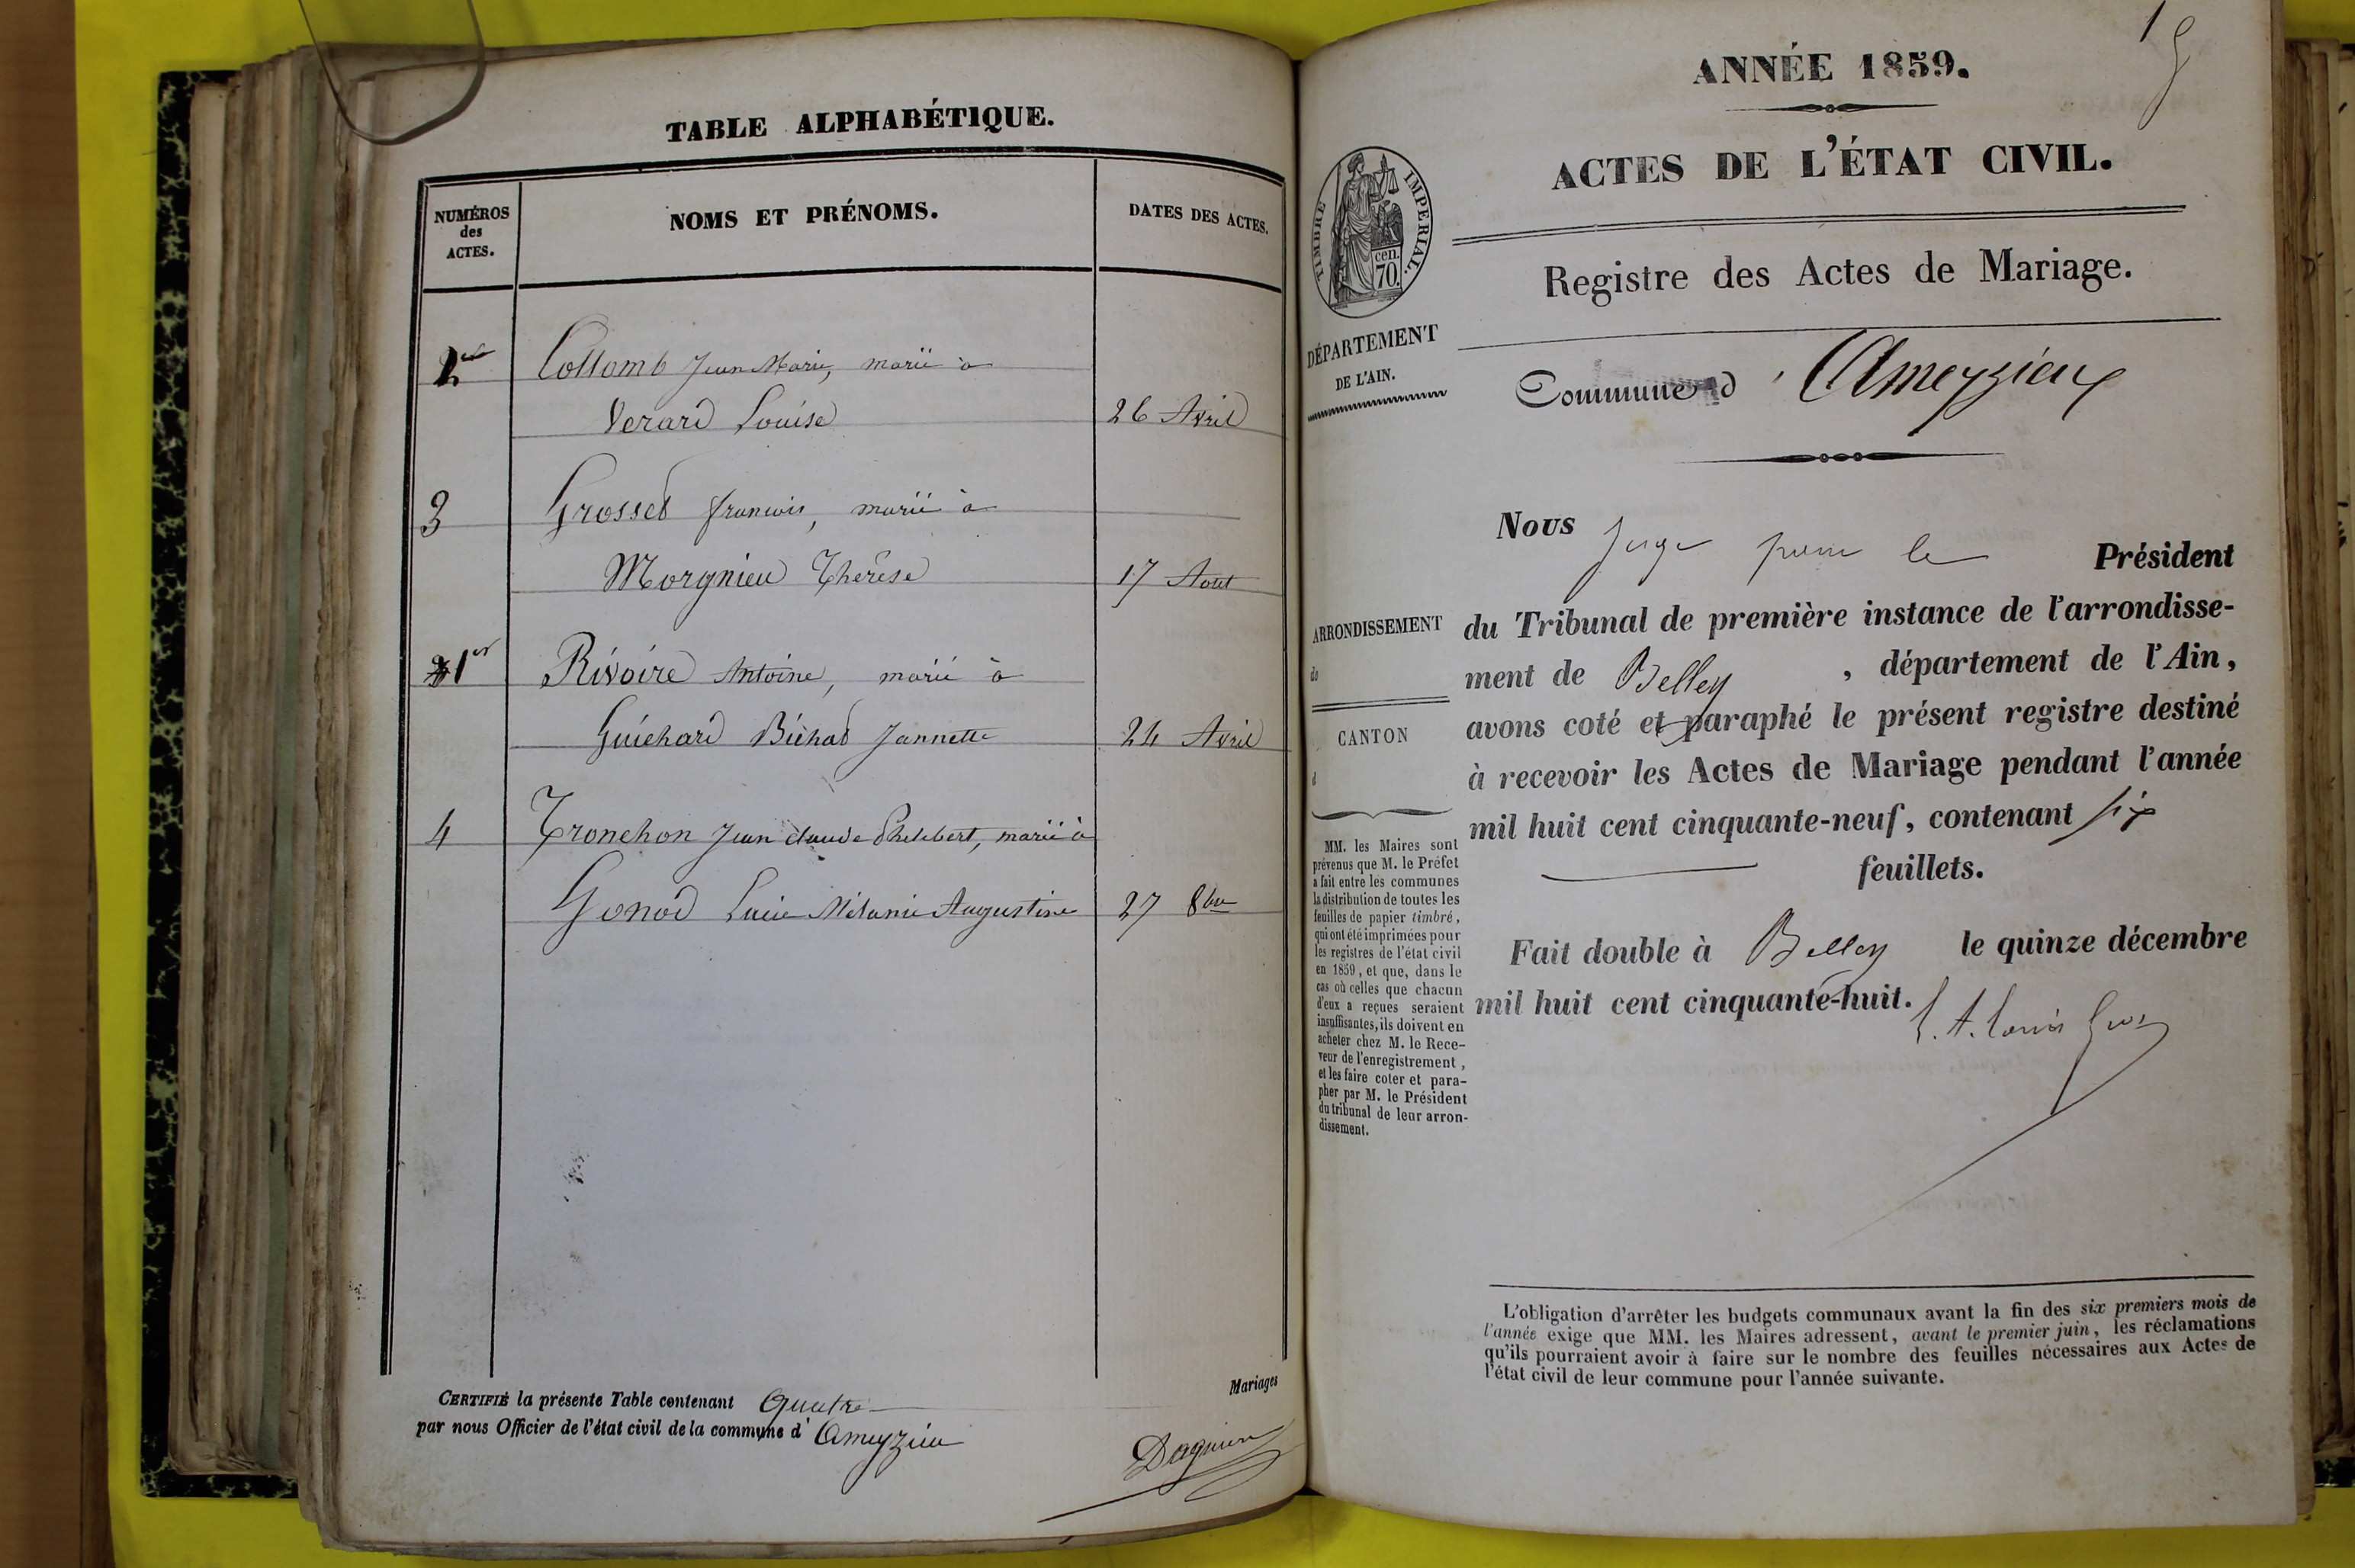 TABLE ALPHABÉTIQUE.
NUMÉROS
des
ACTES.
NOMS ET PRÉNOMS.
DATES DES ACTES.
2 Collomb Jean Marie, marié à
Verard Louise 26 Avril
3 Grosset francois, marié à
Morgnieu Thérèse 17 Aout
1er Rivoire Antoine, marié à
Guichard Béchat Jannette 24 Avril
4 Tronchon Jean claude Philibert, marié à
Gonod Lucie Mélanie Augustine 27 8bre
CERTIFIÉ la présente Table contenant Quatre Mariages
par nous Officier de l'état civil de la commune d' Ameyzieu
Dagnieu
1
ANNÉE 1859.
ACTES DE L'ÉTAT CIVIL.
TIMBRE IMPERIAL.
cen.
70.
Registre des Actes de Mariage.
DÉPARTEMENT
DE L'AIN.
Commune d' Ameyzieux
Nous Juge pour le Président
du Tribunal de première instance de l'arrondisse-
ment de Belley, département de l'Ain,
avons coté et paraphé le présent registre destiné
à recevoir les Actes de Mariage pendant l'année
mil huit cent cinquante-neuf, contenant six
feuillets.
Fait double à Belley le quinze décembre
mil huit cent cinquante-huit.
ARRONDISSEMENT
de
CANTON
d
MM. les Maires sont
prévenus que M. le Préfet
a fait entre les communes
la distribution de toutes les
feuilles de papier timbré,
qui ont été imprimées pour
les registres de l'état civil
en 1859, et que, dans le
cas où celles que chacun
d'eux a reçues seraient
insuffisantes, ils doivent en
acheter chez M. le Rece-
veur de l'enregistrement,
et les faire coter et para-
pher par M. le Président
du tribunal de leur arron-
dissement.
L'obligation d'arrêter les budgets communaux avant la fin des six premiers mois de
l'année exige que MM. les Maires adressent, avant le premier juin, les réclamations
qu'ils pourraient avoir à faire sur le nombre des feuilles nécessaires aux Actes de
l'état civil de leur commune pour l'année suivante.